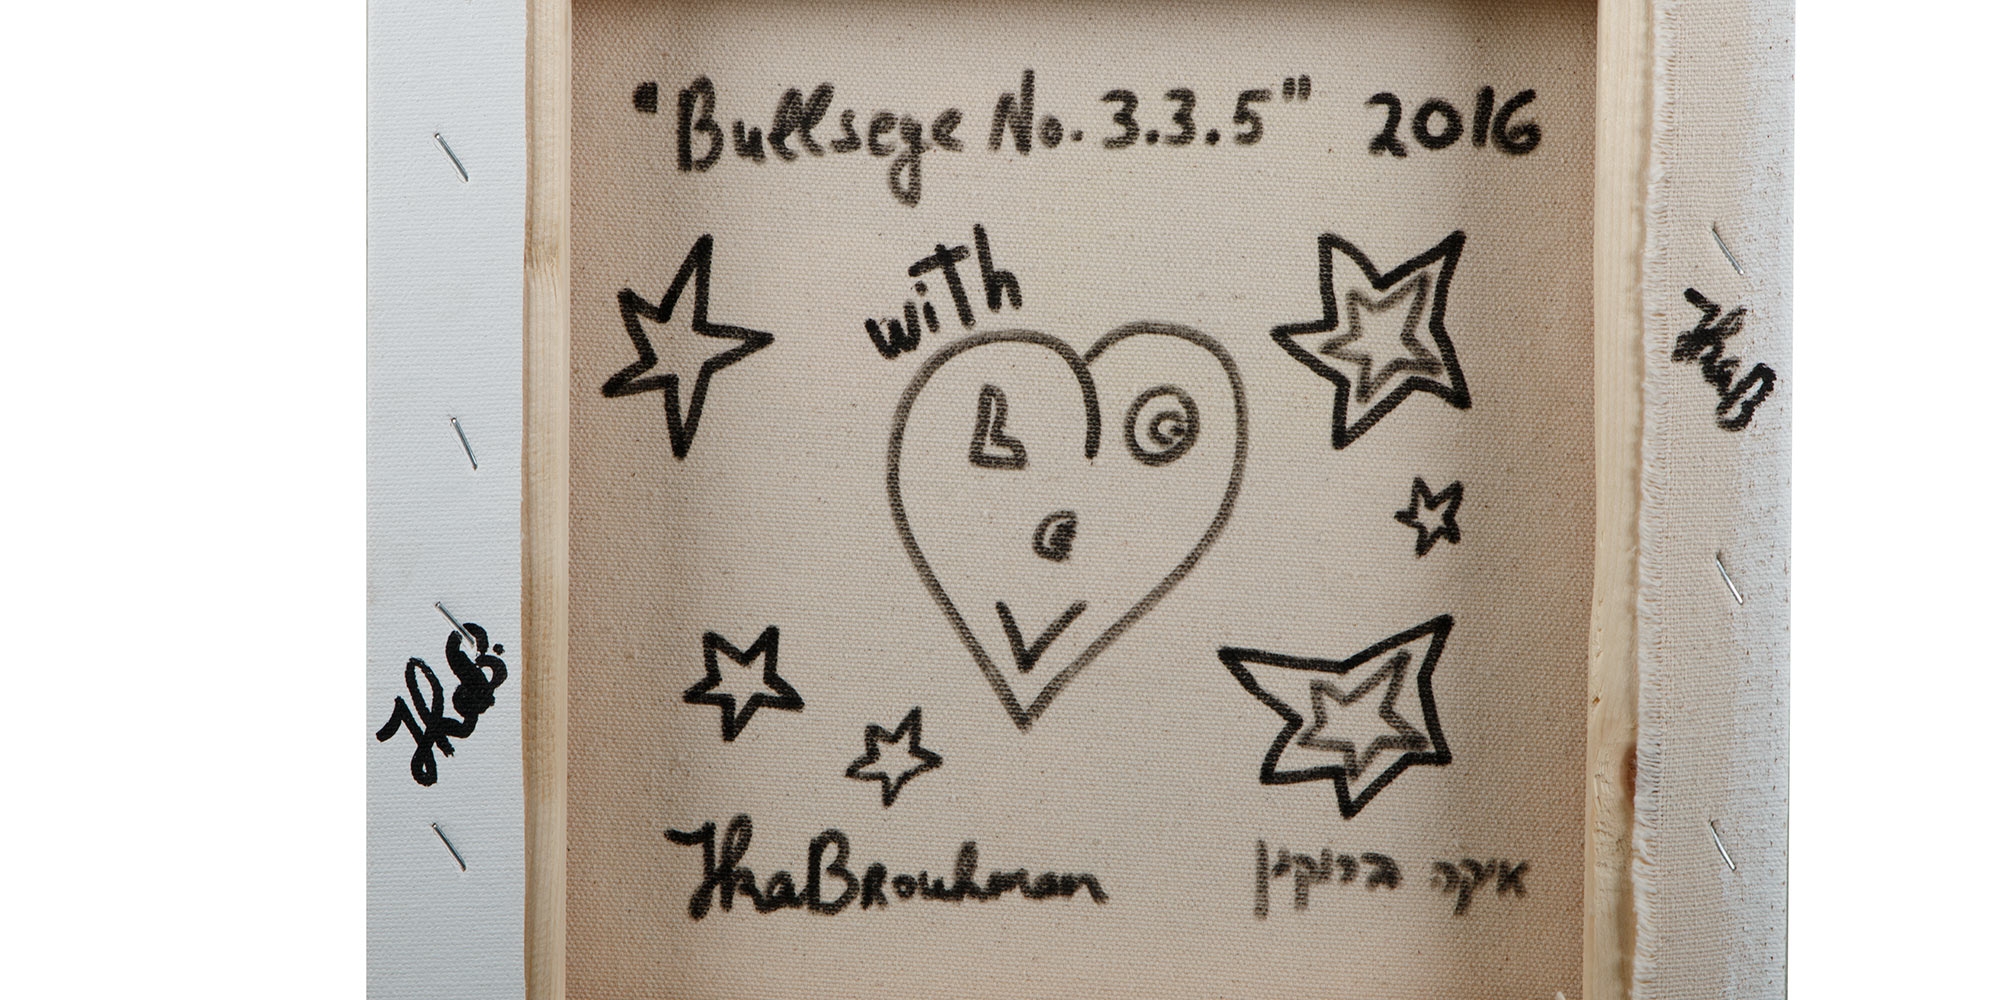 "Bullseye No. 3.3.5" 2016
with
IkaB
IkaB.
IkaBroukman איקה